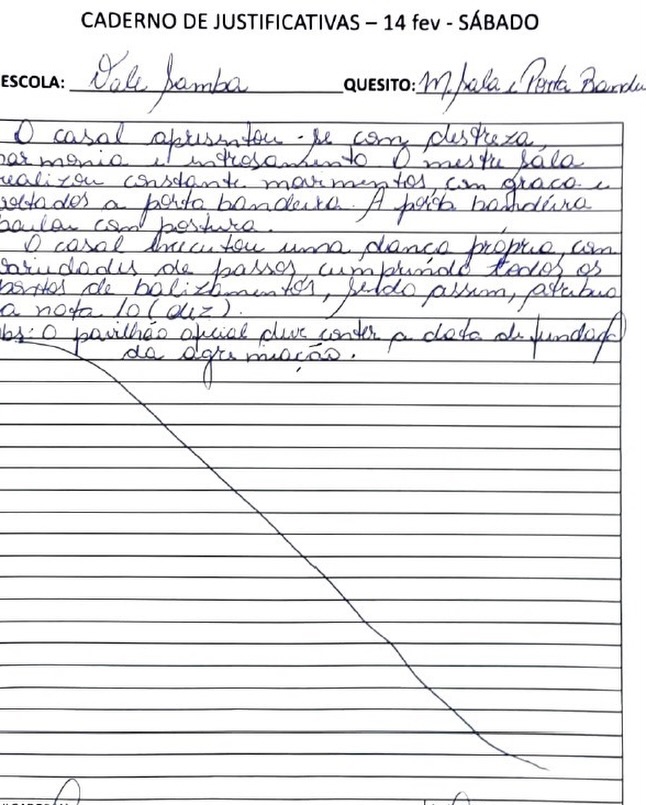 CADERNO DE JUSTIFICATIVAS – 14 fev - SÁBADO
ESCOLA: Vale Samba QUESITO: M. Sala e Porta Bande
O casal apresentou-se com destreza,
harmonia e entrosamento. O mestre sala
realizou constante movimentos, com graça e
voltados a porta bandeira. A porta bandeira
bailou com postura.
O casal executou uma dança própria, com
variedades de passos, cumprindo todos os
pontos de balizamentos, sendo assim, atribuo
a nota 10 (dez).
obs: O pavilhão oficial deve conter a data de fundaç
da agremiação.